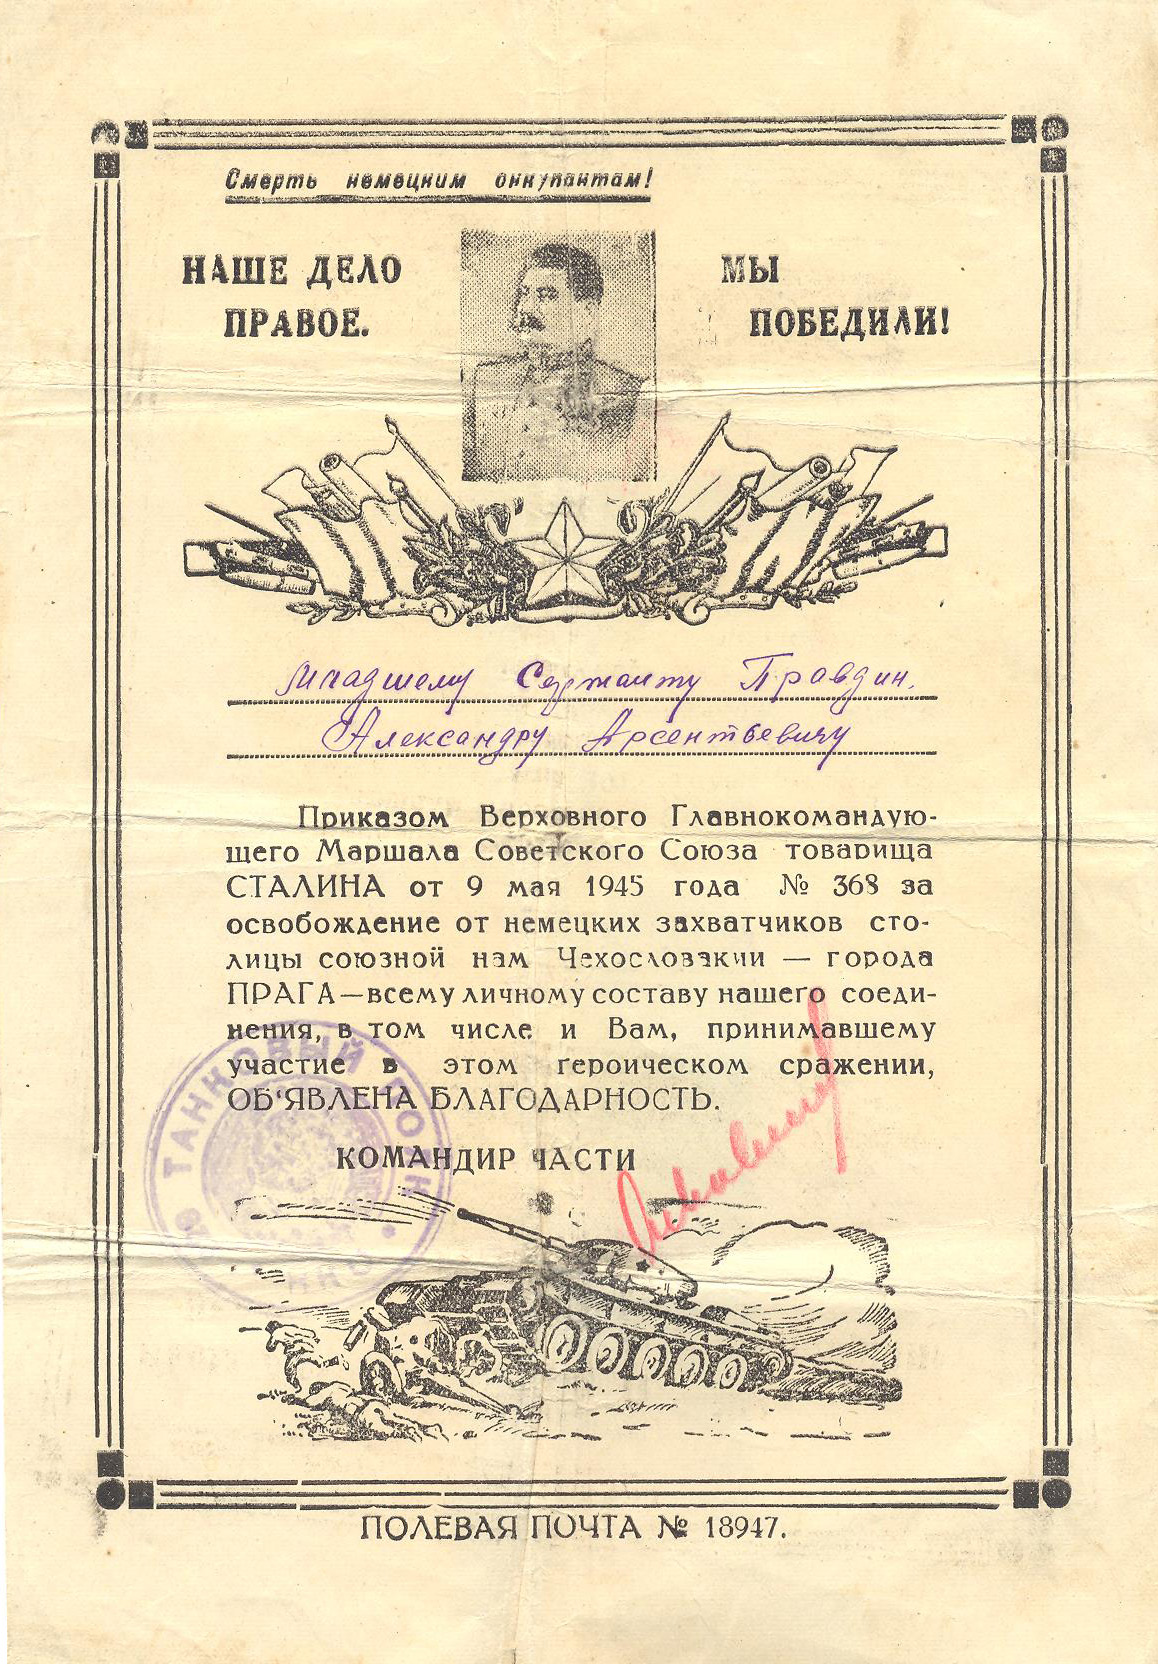 Смерть немецким оккупантам!
НАШЕ ДЕЛО
ПРАВОЕ.
МЫ
ПОБЕДИЛИ!
Младшему Сержанту Правдин.
Александру Арсентьевичу
Приказом Верховного Главнокомандую-
щего Маршала Советского Союза товарища
СТАЛИНА от 9 мая 1945 года № 368 за
освобождение от немецких захватчиков сто-
лицы союзной нам Чехословакии — города
ПРАГА—всему личному составу нашего соеди-
нения, в том числе и Вам, принимавшему
участие в этом героическом сражении,
ОБ'ЯВЛЕНА БЛАГОДАРНОСТЬ.
КОМАНДИР ЧАСТИ
ТАНКОВЫЙ ПОЛК
ПОЛЕВАЯ ПОЧТА № 18947.